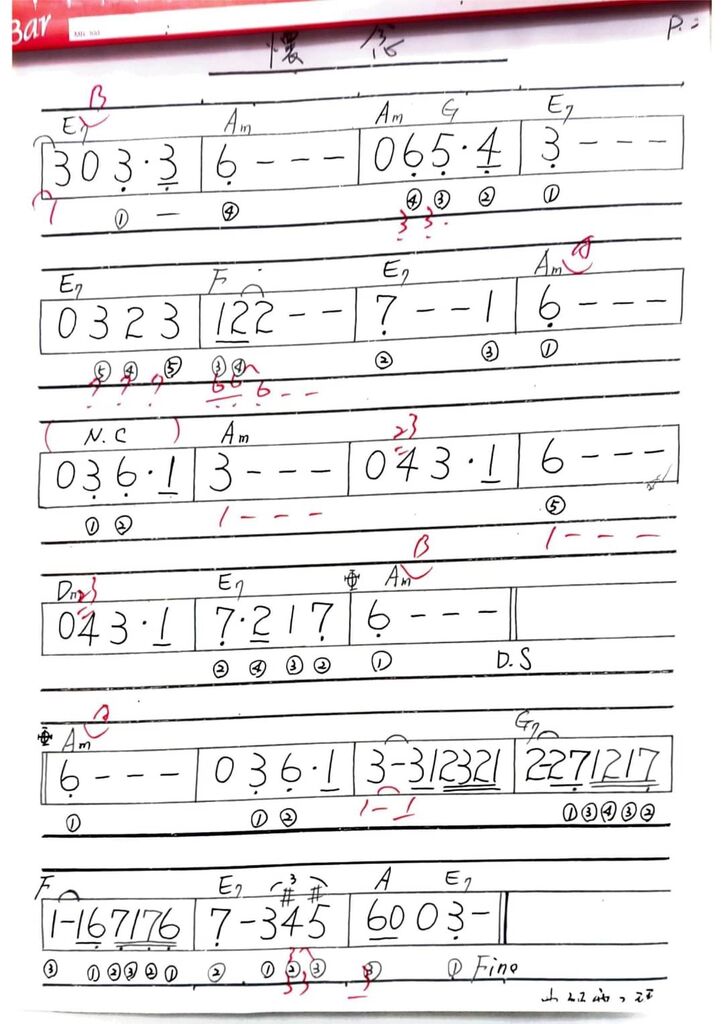 Bar
懷 念
P.
B
E7 Am Am G E7
3 0 3 · 3 | 6 - - - | 0 6 5 · 4 | 3 - - -
1 ① — ④ ④ ③ ② ①
3 3 ·
E7 F E7 Am A
0 3 2 3 | 1 2 2 - - | 7 - - 1 | 6 - - -
⑤ ④ ⑤ ③ ④ ② ③ ①
7 7 7 6 6 6 - -
( N.C ) Am 2 3
0 3 6 · 1 | 3 - - - | 0 4 3 · 1 | 6 - - -
① ② 1 - - - ⑤
1 - - -
B
Dm 2 3 E7 Am
0 4 3 · 1 | 7 · 2 1 7 | 6 - - -
② ④ ③ ② ① D.S
A
Am G7
6 - - - | 0 3 6 · 1 | 3 - 3 1 2 3 2 1 | 2 - 2 7 1 2 1 7
① ① ② 1 - 1 ① ③ ④ ③ ②
F E7 3 # # A E7
1 - 1 6 7 1 7 6 | 7 - 3 4 5 | 6 0 0 3 -
③ ① ② ③ ② ① ② ① ② ③ ③ ① Fine
3 3 3